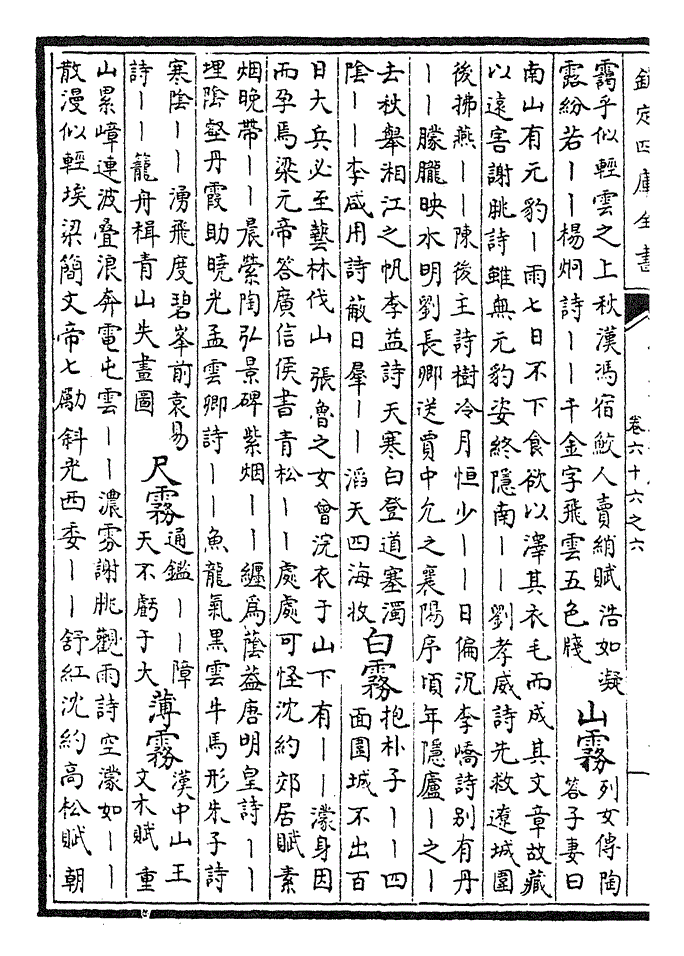 欽定四庫全書
卷六十六之六
靄乎似輕雲之上秋漢馮宿鮫人賣綃賦浩如凝
露紛若丨丨楊炯詩丨丨千金字飛雲五色牋
山霧
列女傳陶
荅子妻曰
南山有元豹丨雨七日不下食欲以澤其衣毛而成其文章故藏
以遠害謝朓詩雖無元豹姿終隱南丨丨劉孝威詩先救遼城圍
後拂燕丨丨陳後主詩樹冷月恒少丨丨日偏沉李嶠詩别有丹
丨丨朦朧映水明劉長卿送賈中允之襄陽序頃年隱廬丨之丨
去秋舉湘江之帆李益詩天寒白登道塞濁
陰丨丨李咸用詩蔽日羣丨丨滔天四海收
白霧
抱朴子丨丨四
面圍城不出百
日大兵必至藝林伐山張魯之女曾浣衣于山下有丨丨濛身因
而孕焉梁元帝答廣信侯書青松丨丨處處可怪沈約郊居賦素
烟晚帶丨丨晨縈陶弘景碑紫烟丨丨纒爲蔭葢唐明皇詩丨丨
埋陰壑丹霞助曉光孟雲卿詩丨丨魚龍氣黑雲牛馬形朱子詩
寒陰丨丨湧飛度碧峯前袁易
詩丨丨籠舟楫青山失畫圖
尺霧
通鑑丨丨障
天不虧于大
薄霧
漢中山王
文木賦重
山累嶂連波叠浪奔電屯雲丨丨濃雰謝朓觀雨詩空濛如丨丨
散漫似輕埃梁簡文帝七勵斜光西委丨丨舒紅沈約高松賦朝